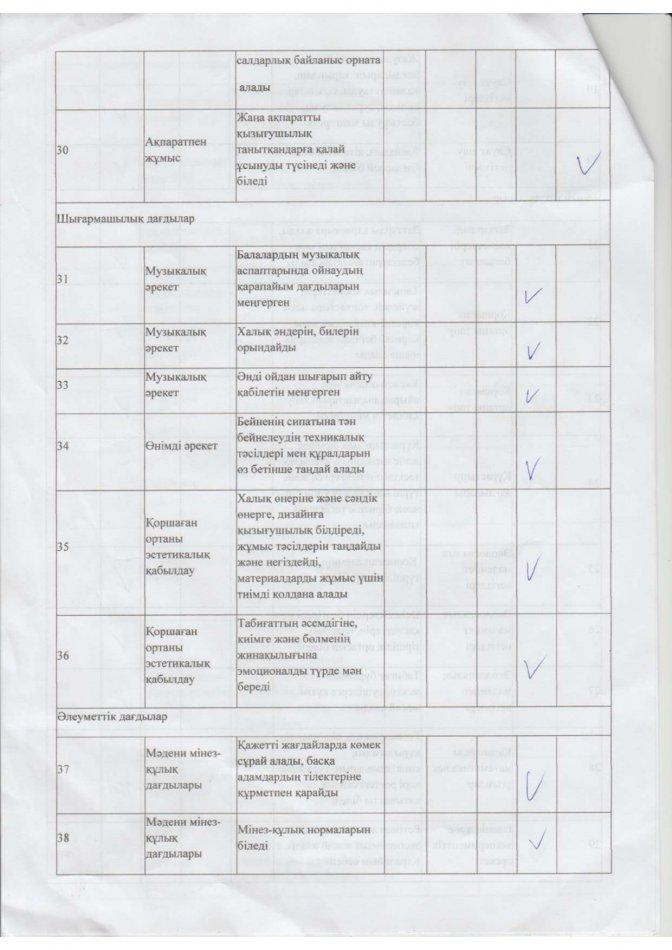 салдарлық байланыс орната
алады
30
Ақпаратпен
жұмыс
Жаңа ақпаратты
қызығушылық
танытқандарға қалай
ұсынуды түсінеді және
біледі
Шығармашылық дағдылар
31
Музыкалық
әрекет
Балалардың музыкалық
аспаптарында ойнаудың
қарапайым дағдыларын
меңгерген
32
Музыкалық
әрекет
Халық әндерін, билерін
орындайды
33
Музыкалық
әрекет
Әнді ойдан шығарып айту
қабілетін меңгерген
34
Өнімді әрекет
Бейненің сипатына тән
бейнелеудің техникалық
тәсілдері мен құралдарын
өз бетінше таңдай алады
35
Қоршаған
ортаны
эстетикалық
қабылдау
Халық өнеріне және сәндік
өнерге, дизайнға
қызығушылық білдіреді,
жұмыс тәсілдерін таңдайды
және негіздейді,
материалдарды жұмыс үшін
тиімді қолдана алады
36
Қоршаған
ортаны
эстетикалық
қабылдау
Табиғаттың әсемдігіне,
киімге және бөлменің
жинақылығына
эмоционалды түрде мән
береді
Әлеуметтік дағдылар
37
Мәдени мінез-
құлық
дағдылары
Қажетті жағдайларда көмек
сұрай алады, басқа
адамдардың тілектеріне
құрметпен қарайды
38
Мәдени мінез-
құлық
дағдылары
Мінез-құлық нормаларын
біледі